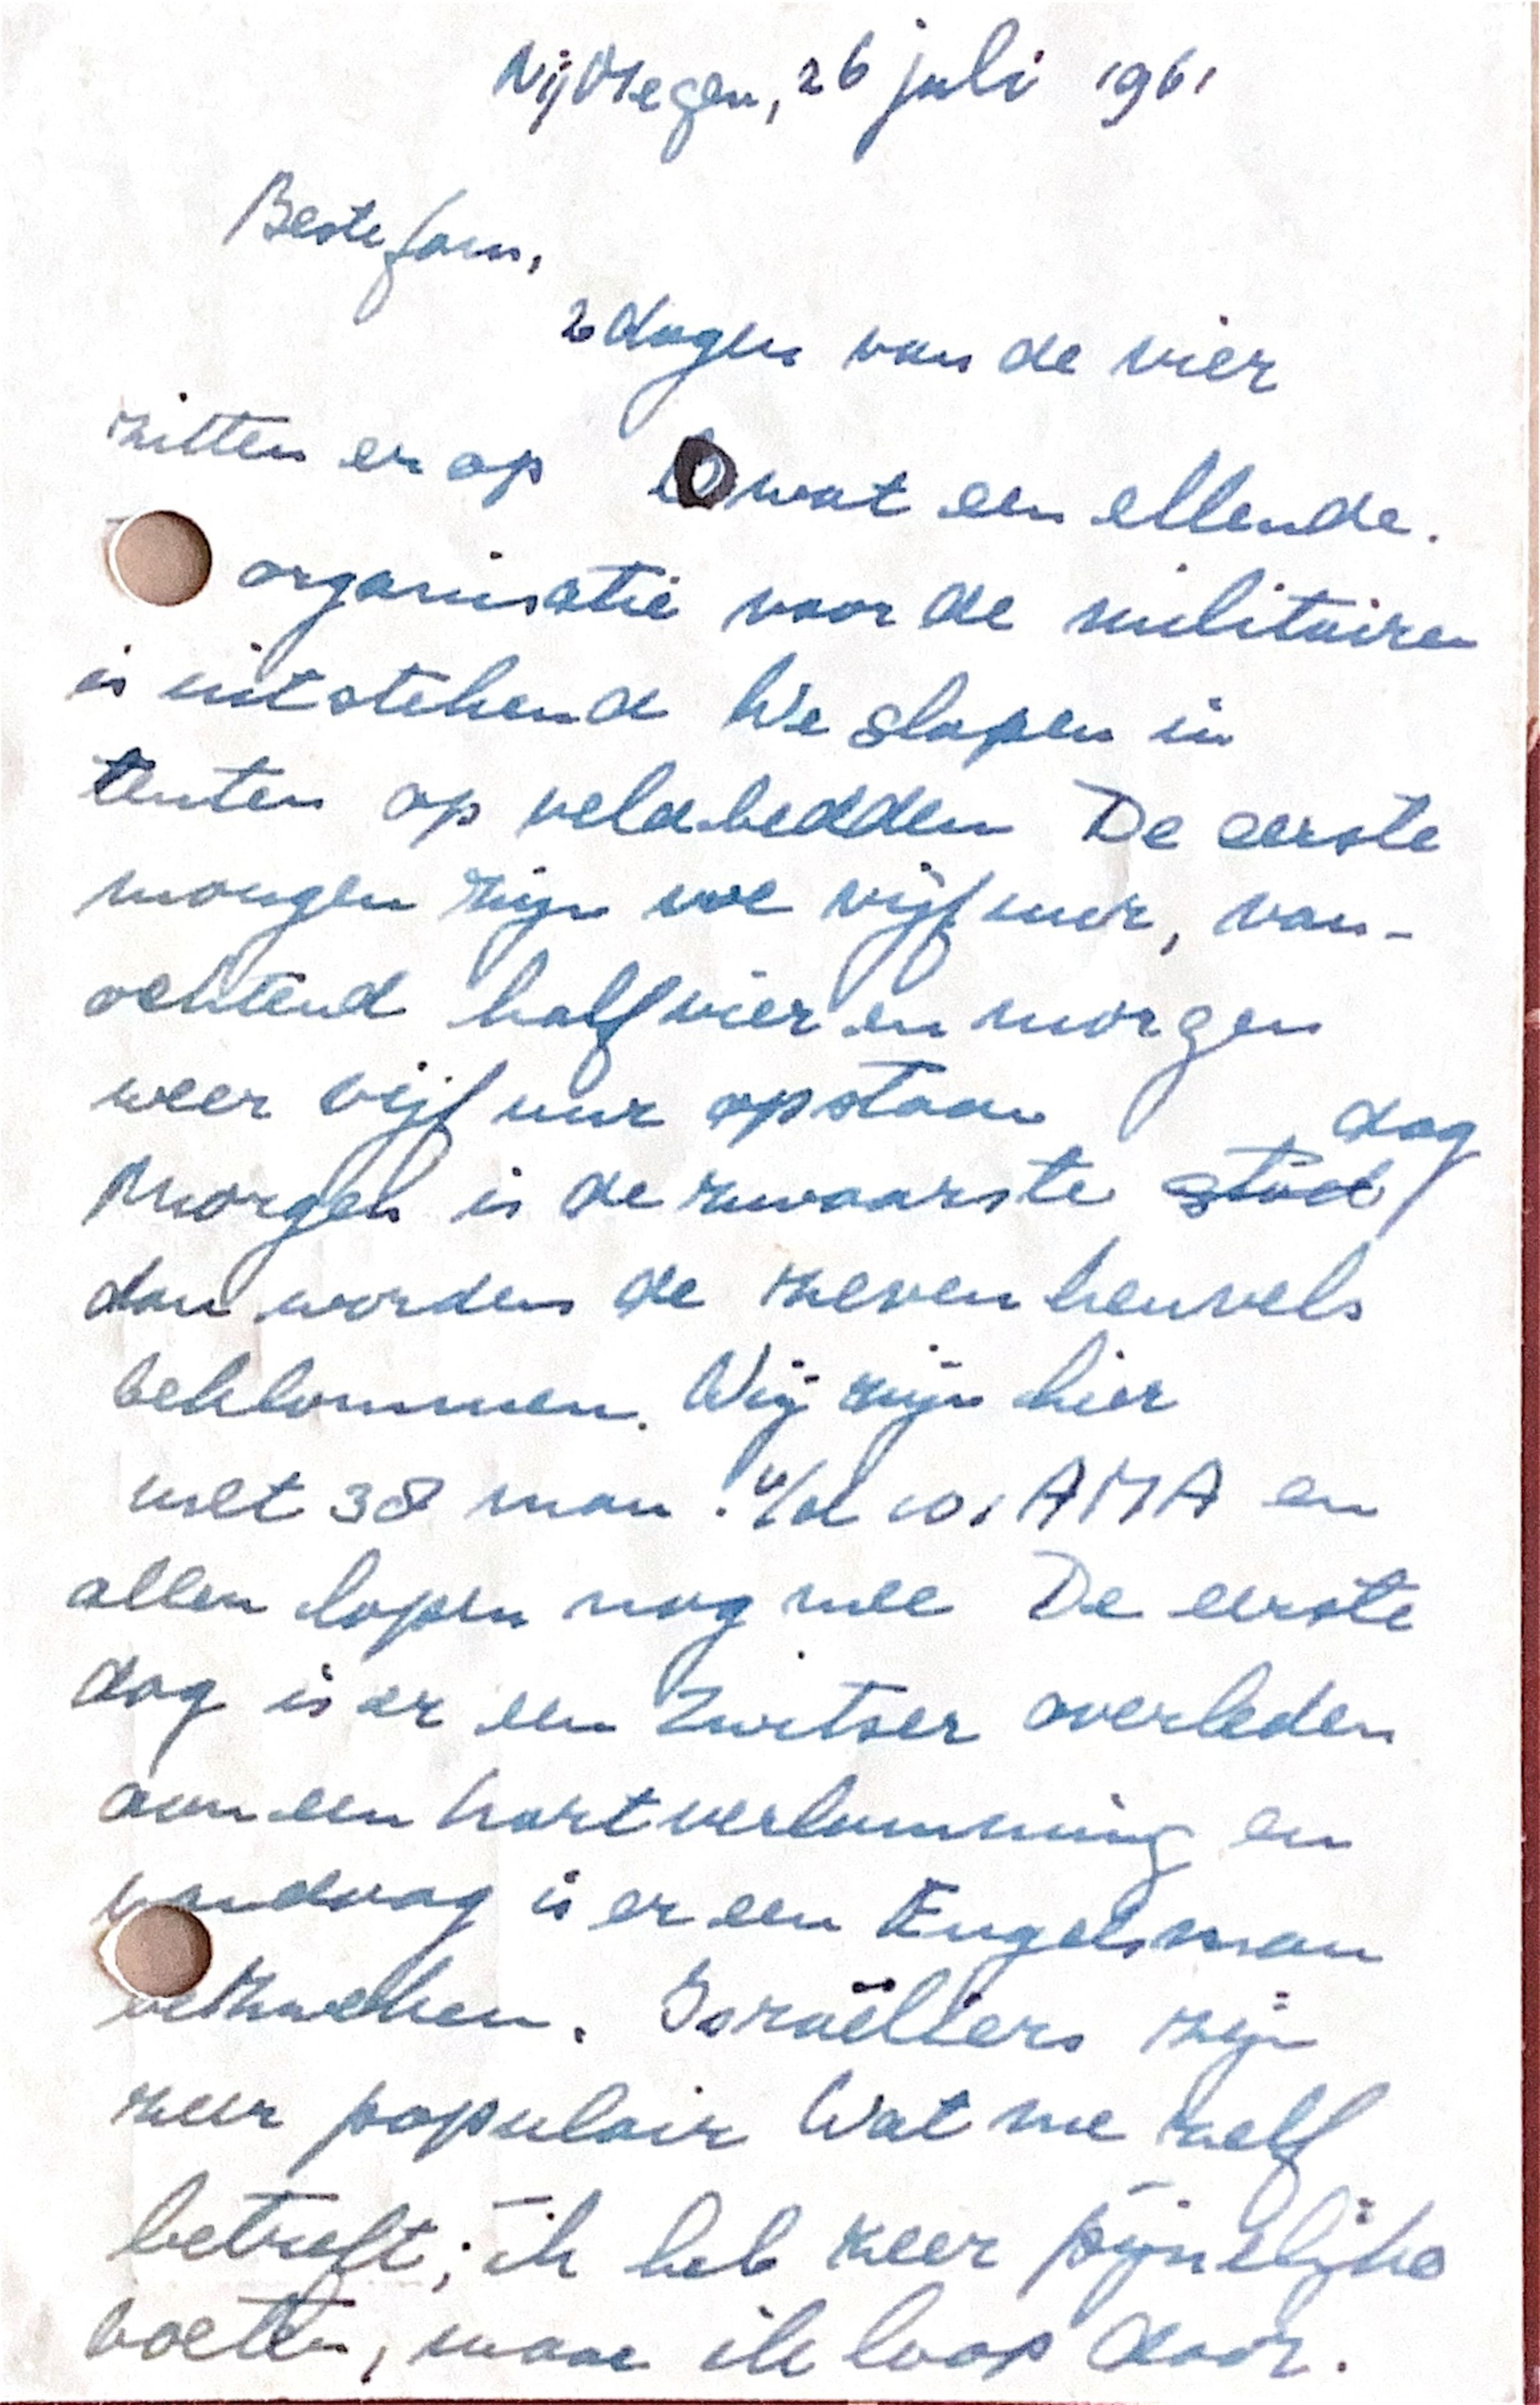 Nijmegen, 26 juli 1961
Beste fam,
2 dagen van de vier
zitten er op O wat een ellende.
organisatie voor de militairen
is uitstekend We slapen in
tenten op veldbedden De eerste
morgen zijn we vijf uur, van-
ochtend half vier en morgen
weer vijf uur opstaan
Morgen is de zwaarste stad dag
dan worden de zeven heuvels
beklommen. Wij zijn hier
met 38 man v/d 101 AMA en
allen lopen nog mee De eerste
dag is er een Zwitser overleden
aan een hartverlamming en
vandaag is er een Engelsman
bezweken. Israëliers zijn
zeer populair Wat me zelf
betreft; ik heb zeer pijnelijke
voeten, maar ik loop door.